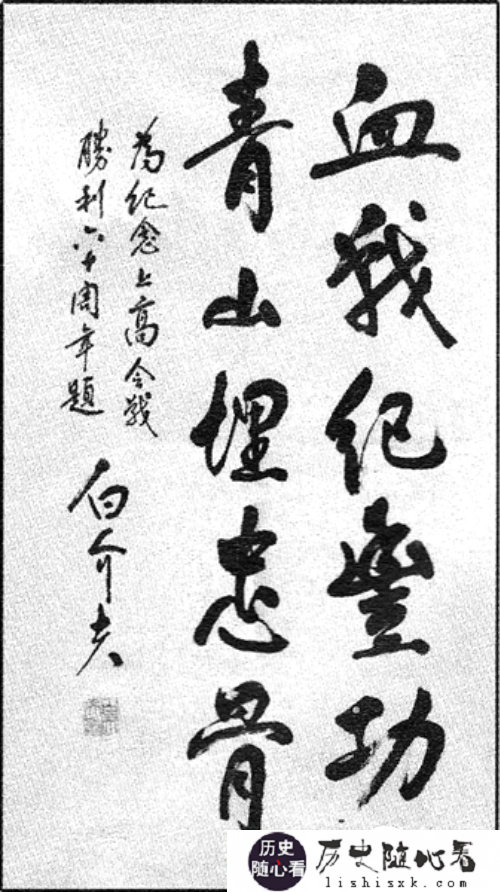 血戰纪豐功
青山埋忠骨
為纪念上高会战
勝利六十周年題
白介夫
历史
随心看
历史随心看
lishisxk.com